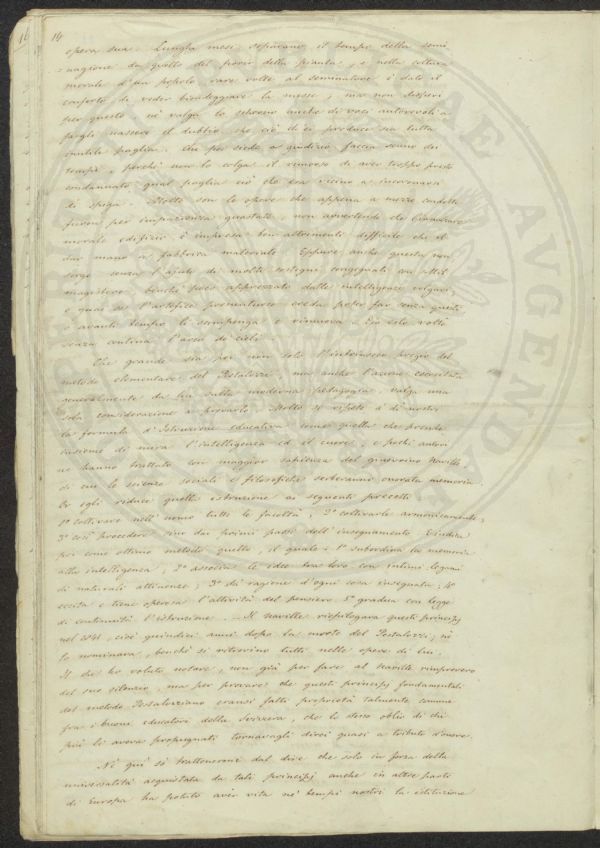 14
opera sua. Lunghi mesi separano il tempo della semi-
nagione da quello del fiorir della pianta, e nella coltura
morale d'un popolo rare volte al seminatore è dato il
conforto di veder biondeggiare la messe, ma non disperi
per questo nè valga lo scherno anche di voci autorevoli a
fargli nascere il dubbio che ciò ch'ei produce sia tutta
inutile paglia. Chi poi siede a giudizio faccia senno dei
tempi, perchè non lo colga il rimorso di aver troppo presto
condannato qual paglia ciò che era vicino a incoronarsi
di spiga. Molte son le opere che appena a mezzo condotte
furon per impazienza guastate, non avvertendo che l'innalzare
morale edifizio è impresa ben altrimenti difficile che il
dar mano a fabbrica materiale. Eppure anche questa non
sorge senza l'ajuto di molti sostegni congegnati con
magistero benchè poco apprezzato dalle intelligenze volgari,
e guai se l'artefice prematuro creda poter far senza questi
e avanti tempo li scomponga e rimuova. Ciò solo volti
senza centina l'arco de' cieli.
Che grande sia poi non solo l'intrinseco pregio del
metodo elementare del Pestalozzi ma anche l'azione esercitata
generalmente da lui sulla moderna pedagogia, valga una
sola considerazione a provarlo. Molto si ripete a' dì nostri
la formula d'Istruzione educativa come quella che prende
insieme di mira l'intelligenza ed il cuore, e pochi autori
ne hanno trattato con maggior sapienza del ginevrino Naville
di cui le scienze sociali e filosofiche serberanno onorata memoria.
Or egli riduce quella istruzione ai seguenti precetti
1° coltivare nell'uomo tutte le facoltà, 2° coltivarle armonicamente,
3° così procedere sino dai primi passi dell'insegnamento. Giudica
poi come ottimo metodo quello, il quale = 1° subordina la memoria
alla intelligenza, 2° associa le idee tra loro con intimi legami
di naturali attinenze, 3° dà ragione d'ogni cosa insegnata, 4°
eccita e tiene operosa l'attività del pensiero, 5° gradua con legge
di continuità l'istruzione. ... Il Naville riepilogava questi principj
nel 1841, cioè quindici anni dopo la morte del Pestalozzi, nè
lo nominava, benchè si ritrovino tutti nelle opere di lui.
Il che ho voluto notare, non già per fare al Naville rimprovero
del suo silenzio, ma per provare che questi principj fondamentali
del metodo Pestalozziano eransi fatti proprietà talmente comune
fra i buoni educatori della Svizzera, che lo stesso oblio di chi
più li aveva propugnati tornavagli direi quasi a tributo d'onore.
Nè qui so trattenermi dal dire che solo in forza della
universalità acquistata da tali principj anche in altre parti
di Europa ha potuto aver vita ne' tempi nostri la istituzione